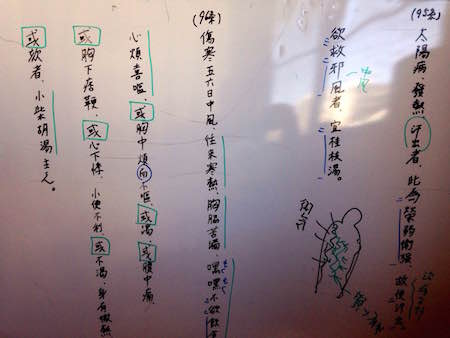 (95条)
太陽病、發熱、汗出者、此為榮弱衛强、故使汗出。
欲救邪風者、宜桂枝湯。
(96条)
傷寒五六日中風、往来寒熱、胸脇苦満、嘿嘿不欲飲食
心煩喜嘔、或胸中煩而不嘔、或渇、或腹中痛、
或胸下痞鞕、或心下悸、小便不利、或不渇、身有微熱
或欬者、小柴胡湯主之。